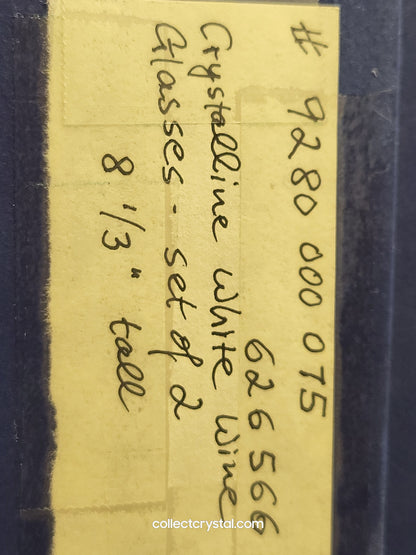 # 9280 000 075
626566
Crystalline White Wine
Glasses - set of 2
8 1/3" tall
collectcrystal.com